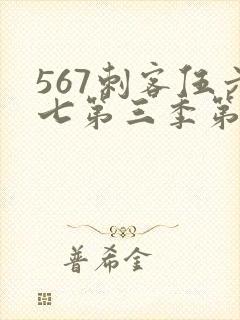 567刺客伍六
七第三季第
普希金